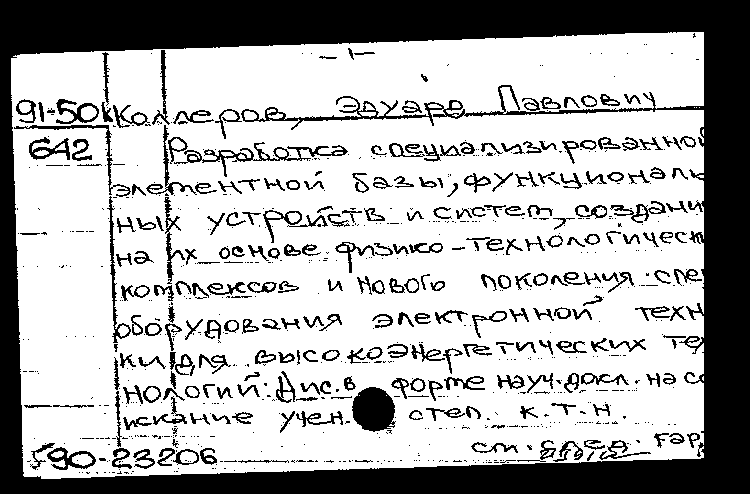 - 1 -
91-50k Коллеров, Эдуард Павлович
642 Разработка специализированной
элементной базы, функциональ
ных устройств и систем, создани
на их основе физико-технологическ
комплексов и нового поколения спец
оборудования электронной техн
ки для высокоэнергетических тех
нологий. Дис. в форме науч. докл. на со
искание учен. степ. к.т.н.
см. след. гар
590-23206